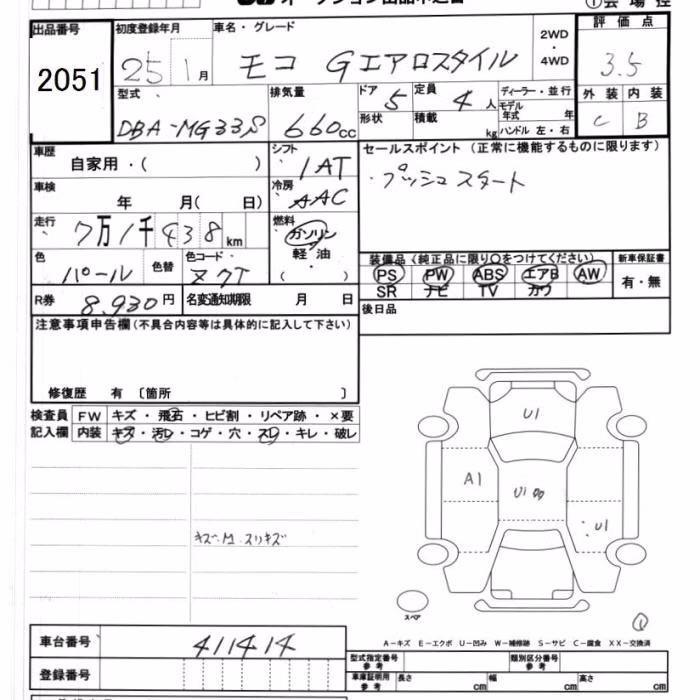 ①会場控
出品番号 2051
初度登録年月 25 1月
車名・グレード モコ Gエアロスタイル
2WD・4WD
評価点 3.5
外装 C 内装 B
型式 DBA-MG33S
排気量 660cc
ドア 5 定員 4人
形状 積載 kg
ディーラー・並行
モデル年式 年
ハンドル 左・右
車歴 自家用・( )
シフト IAT
車検 年 月( 日)
冷房 AAC
走行 7万1千438km
燃料 ガソリン・軽油・( )
色 パール 色替 色コード
R券 8,930円 名変通知期限 月 日
セールスポイント(正常に機能するものに限ります)
・プッシュスタート
装備品(純正品に限り〇をつけてください)
PS PW ABS エアB AW
SR ナビ TV カワ
新車保証書 有・無
後日品
注意事項申告欄(不具合内容等は具体的に記入して下さい)
修復歴 有 〔箇所 〕
検査員記入欄
FW キズ・飛石・ヒビ割・リペア跡・×要
内装 キズ・汚レ・コゲ・穴・スレ・キレ・破レ
U1
A1
U1
U1
スペア
A-キズ E-エクボ U-凹み W-補修跡 S-サビ C-腐食 XX-交換済
車台番号 411414
登録番号
型式指定番号 参考
類別区分番号 参考
車庫証明用 参考 長さ cm 幅 cm 高さ cm